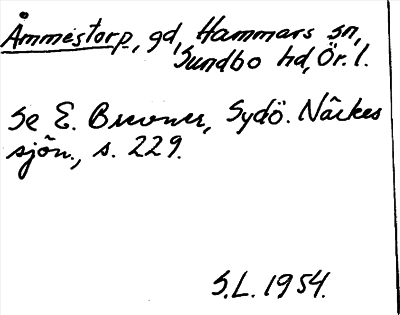 Åmmestorp, gd, Hammars sn,
Sundbo hd, Ör. l.
Se E. Brevner, Sydö. Närkes
sjön., s. 229.
S.L. 1954.